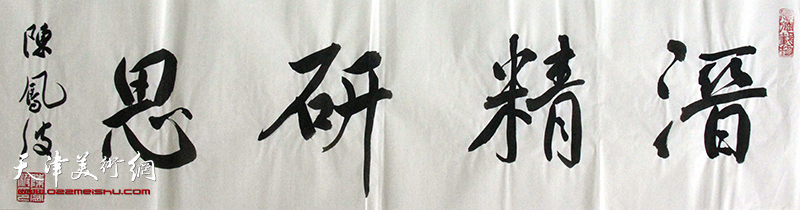 潛精研思
陳鳳波
天津美術網
www.022meishu.com